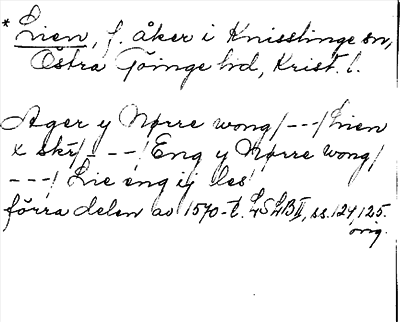 * Lien, f. åker i Knisslinge sn,
Östra Göinge hd, Krist. l.
Ager y Nørre wong/---/Lien
x skr/---/Eng y Nørre wong/
---/ Lie eng ij les
förra delen av 1570-t. LSLB II, ss. 124, 125.
orig.